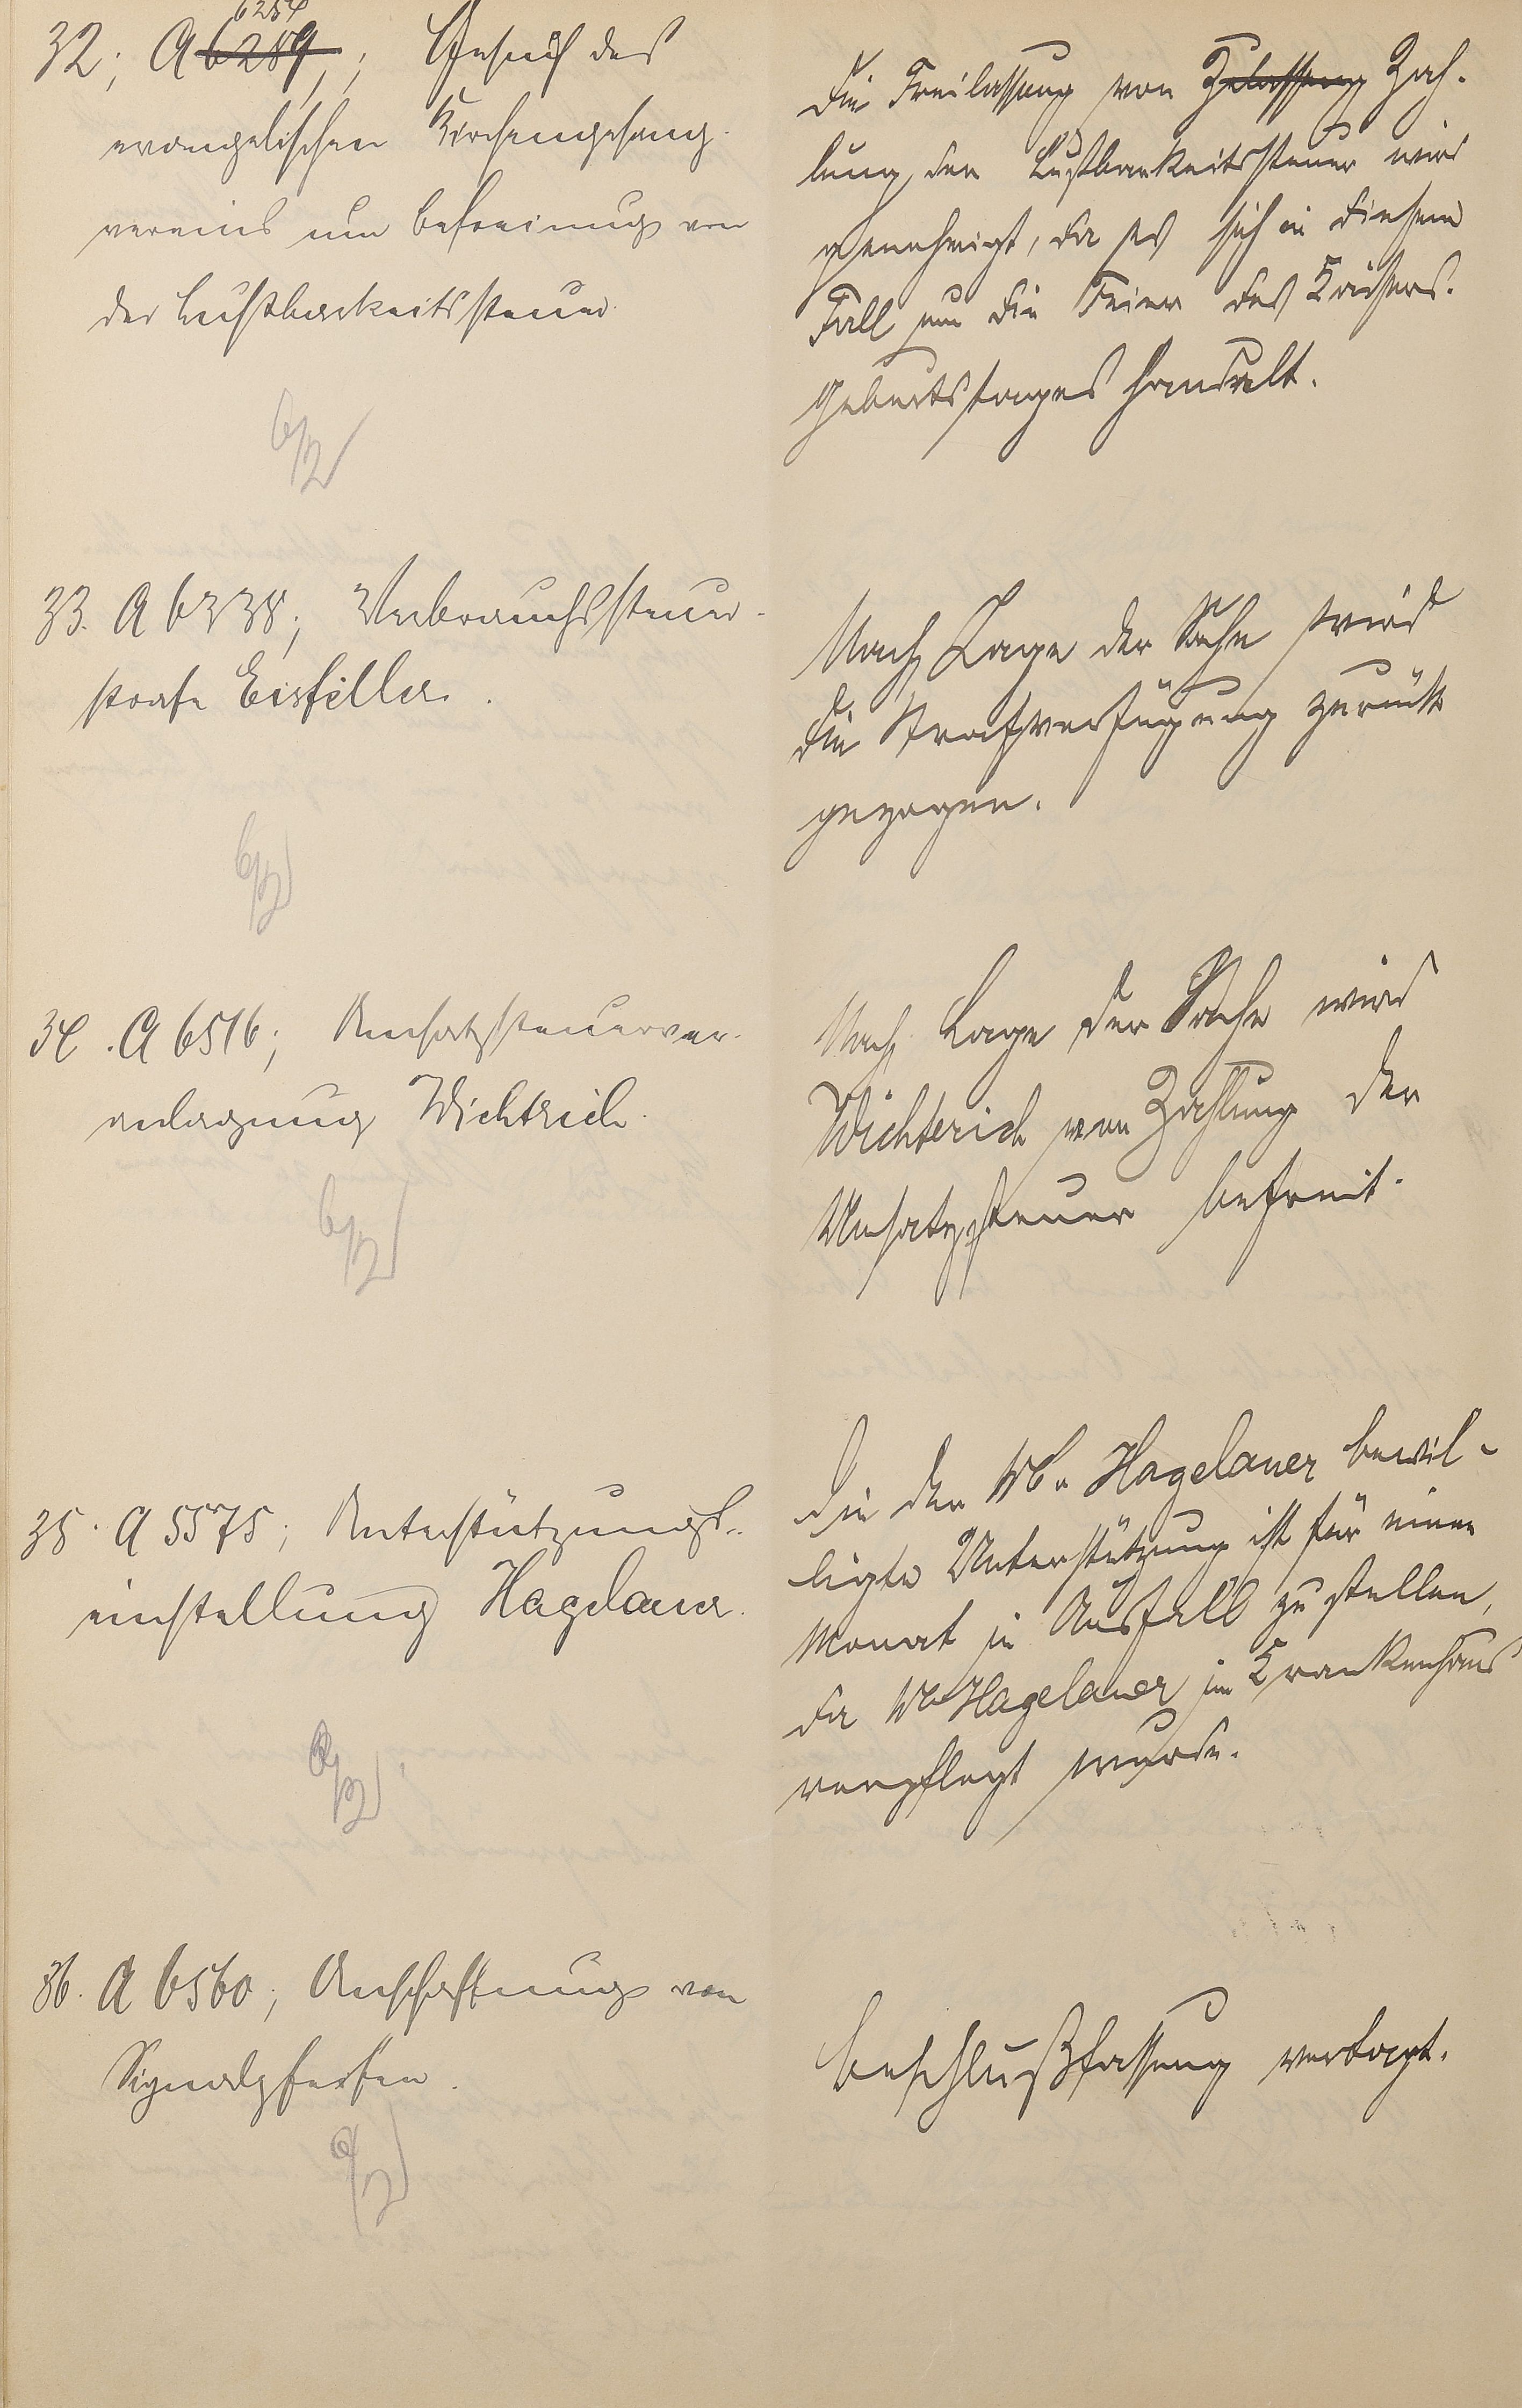 32; A 6289; 6254 Gesuch des
evangelischen Kirchengesang-
vereins um Befreiung von
der Lustbarkeitssteuer.
Die Freilassung von Zulassung Zah-
lung der Lustbarkeitssteuer wird
genehmigt, da es sich in diesem
Fall um die Feier des Kaisers-
Geburtstages handelt.
33. A 6338; Verbrauchssteuer-
strafe Eisfeller.
Nach Lage der Sache wird
die Strafverfügung zurück
gezogen.
34. A 6516; Umsatzsteuerver-
anlagung Wichtrich.
Nach Lage der Sache wird
Wichterich von Zahlung der
Umsatzsteuer befreit.
35. A 5575; Unterstützungs-
einstellung Hagelauer.
Die der Wb. Hagelauer bewil-
ligte Unterstützung ist für einen
Monat in Ausfall zu stellen,
da Wb Hagelauer im Krankenhaus
verpflegt wurde.
36. A 6560; Anschaffung von
Signalpfeifen.
Beschlußfassung vertagt.